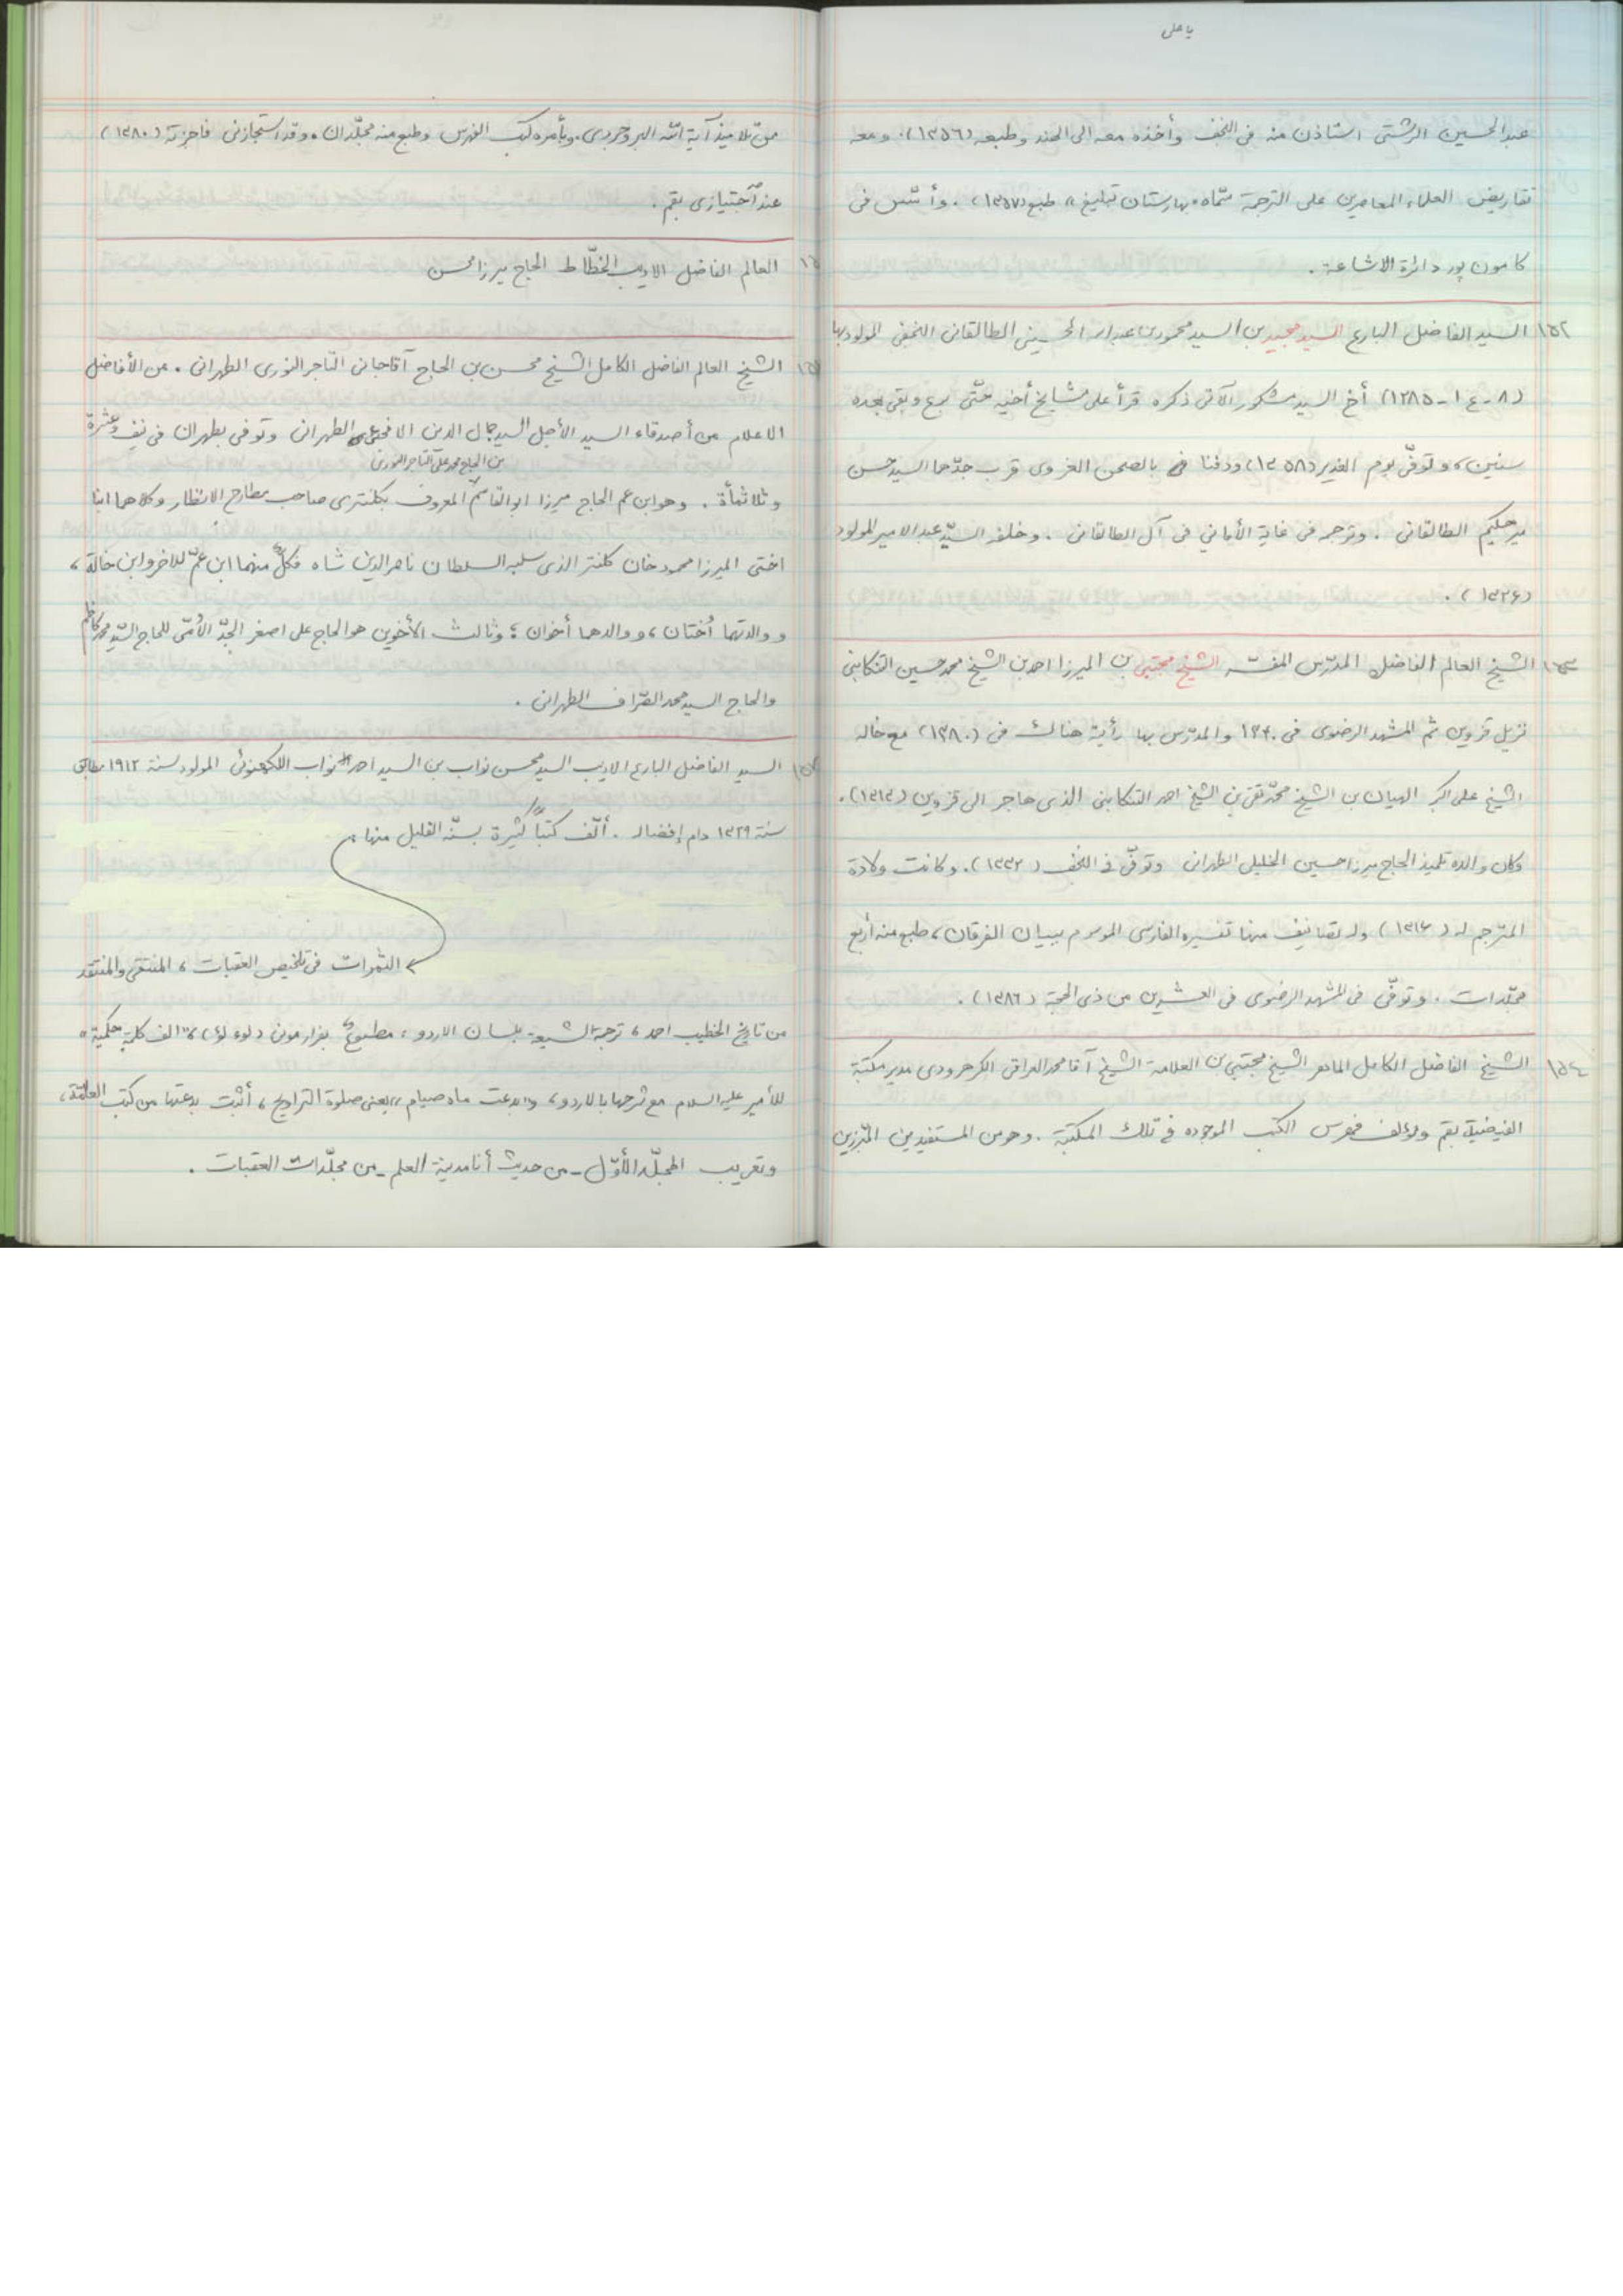 يا على
عبدالحسين الرشتى استاذن منه فى النجف وأخذه معه الى الهند وطبعه (١٣٥٦). ومعه
تقاريض العلماء المعاصرين على الترجمة سمّاه «بهارستان تبليغ» طبع (١٣٥٧). وأسّس فى
كامون پور دائرة الاشاعة.
١٥٢ السيد الفاضل البارع السيد مجيد بن السيد محمود بن عبدالله الحسينى الطالقانى النجفى المولود بها
(٨-ع١-١٢٨٥) أخ السيد مشكور الآتى ذكره قرأ على مشايخ أخيه حتّى برع وبقى بعده
سنين، وتوفّى يوم الغدير (١٣٥٨) ودفنا بالصحن الغروى قرب جدّهما السيد حسن
مير حكيم الطالقانى. وترجم فى غاية الأماني فى آل الطالقانى. وخلفه السيّد عبد الامير المولود
(١٣٣٤).
١٥٣ الشيخ العالم الفاضل المدرّس المفسّر الشيخ مجتبى بن الميرزا احمد بن الشيخ محمد حسين التنكابنى
نزيل قزوين ثم المشهد الرضوى فى ١٣٤٠ والمدرّس بها رأيته هناك فى (١٣٨٠) مع خاله
الشيخ على اكبر الهيان بن الشيخ محمّد تقى بن الشيخ احمد التنكابنى الذى هاجر الى قزوين (١٣١٣).
وكان والده تلميذ الحاج ميرزا حسين الخليلى الطهرانى وتوفّى فى النجف (١٣٣٢). وكانت ولادة
المترجم له (١٣١٤) وله تصانيف منها تفسيره الفارسى الموسوم ببيان الفرقان، طبع منه أربع
مجلّدات. وتوفّى فى المشهد الرضوى فى العشرين من ذى الحجة (١٣٨٦).
١٥٤ الشيخ الفاضل الكامل الماهر الشيخ مجتبى بن العلامة الشيخ آقا محمد العراقى الكرهرودى مدير مكتبة
الفيضية بقم ومؤلف فهرس الكتب الموجوده فى تلك المكتبة. وهو من المستفيدين المبرّزين
من تلاميذ آية الله البروجردى. وبأمره كتب الفهرس وطبع منه مجلّدان. وقد استجازنى فاجزته (١٣٨٠)
عند اجتيازى بقم.
العالم الفاضل الاديب الخطّاط الحاج ميرزا محسن
الشيخ العالم الفاضل الكامل الشيخ محسن بن الحاج آقاجانى التاجر النورى الطهرانى. من الأفاضل
الاعلام من أصدقاء السيد الأجل السيد جمال الدين الطهرانى وتوفى بطهران فى نيف وعشرة
بن الحاج محمد على التاجر النورى
وثلاثمأة. وهو ابن عم الحاج ميرزا ابو القاسم المعروف بكلنترى صاحب مطارح الانظار وكلاهما ابنا
اختى الميرزا محمود خان كلنتر الذى سلبه السلطان ناصرالدين شاه فكلّ منهما ابن عمّ للاخر وابن خالة،
ووالدتهما أختان، ووالدهما أخوان؛ وثالث الأخوين هو الحاج على اصغر الجدّ الأمّى للحاج السيّد محمد كاظم
والحاج السيد محمد الصّراف الطهرانى.
السيد الفاضل البارع الاديب السيد محسن نواب بن السيد احمد نواب اللكهنوئى المولود سنة ١٩١٢ مطابق
سنة ١٣٢٩ دام إفضاله. ألّف كتباً كثيرة منها:
الثمرات فى تلخيص العبقات، المنتقى والمنتقد
من تاريخ الخطيب احمد، ترجمة الشيعة بلسان الاردو، مطبوع، هزار موتى (لوء لؤ)، «الف كلمة حكمية»
للأمير عليه السلام مع شرحها بالاردو، وبدعت ماه صيام، يعنى صلوة التراويح، أثبت بدعتها من كتب العامّة،
وتعريب المجلّد الأوّل - من حديث أنا مدينة العلم - من مجلّدات العبقات.